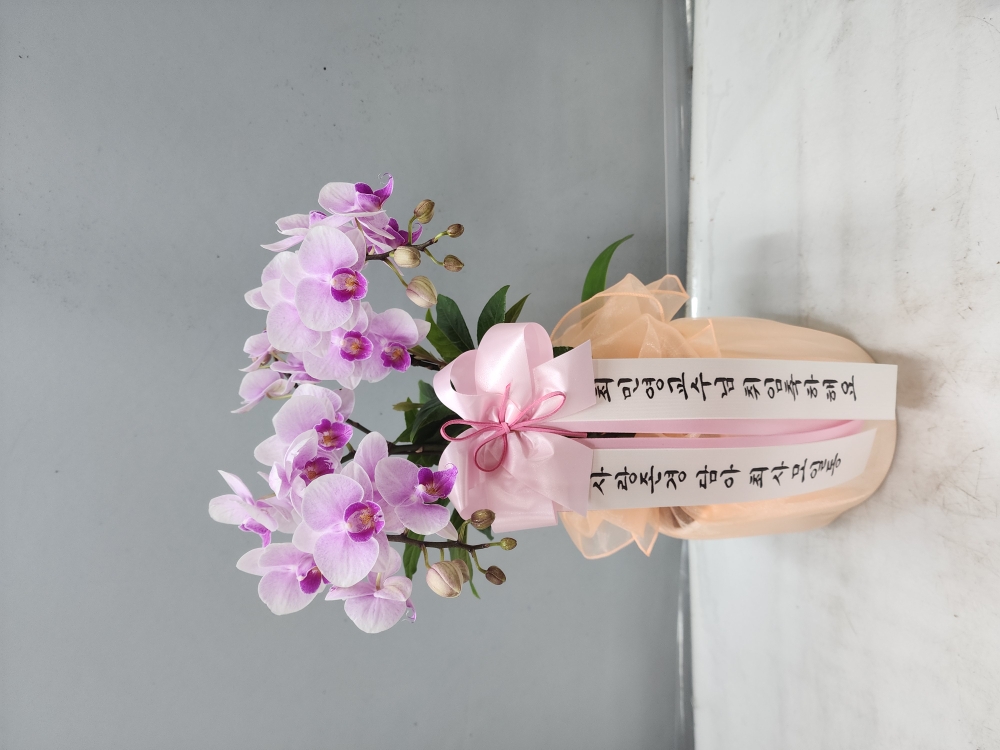 최민영교수님 취임축하해요
사랑존경 담아 최사모일동